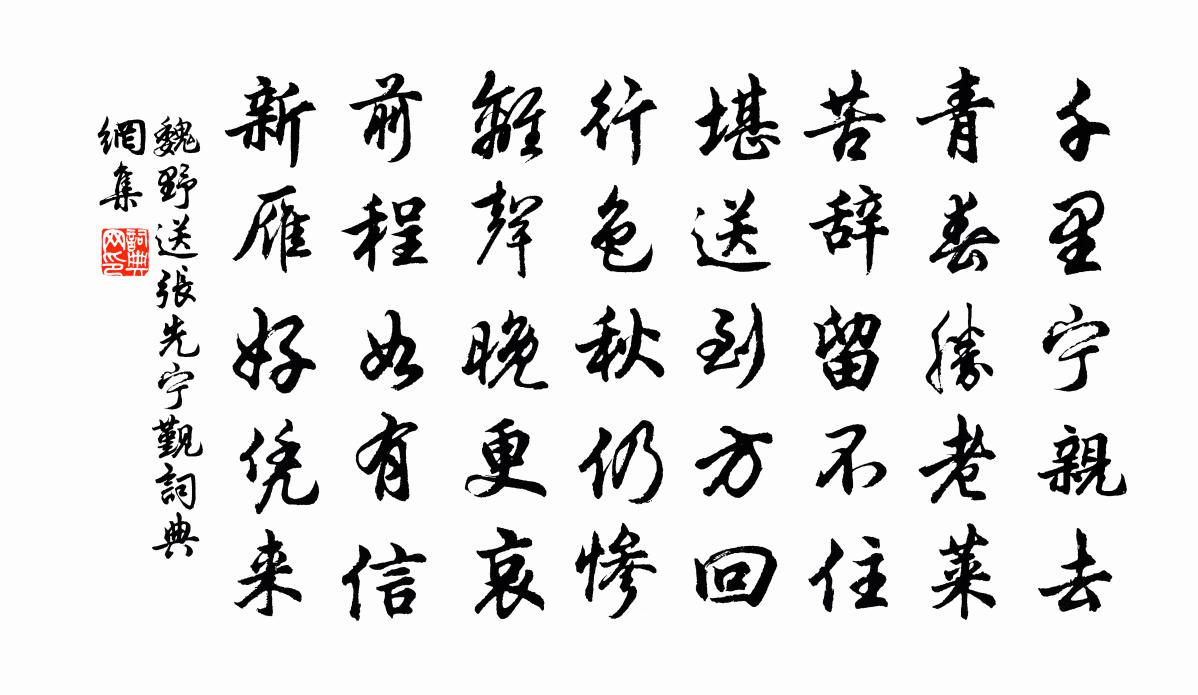 千里宁親去
青春勝老莱
苦辞留不住
堪送到方回
行色秋仍慘
離聲晚更哀
前程如有信
新雁好凭来
魏野送張先宁覲詞典
網集
詞典
网印